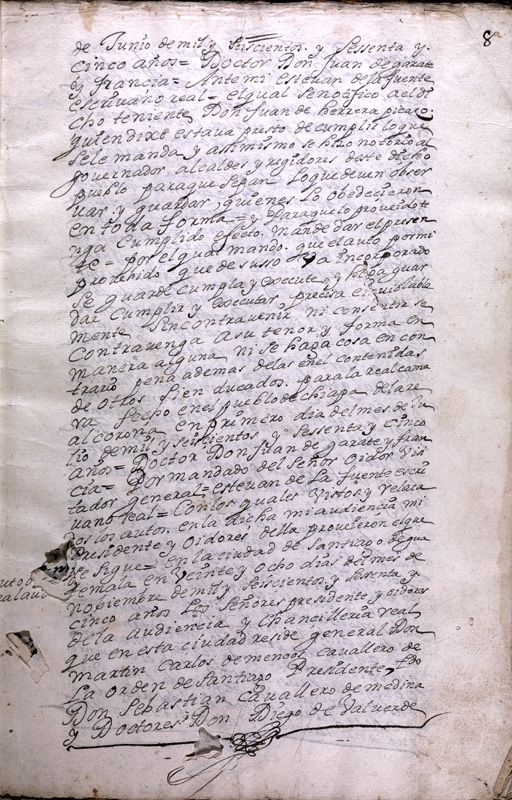 8
de Junio de mil y seiscientos y sessenta y
cinco años = Doctor Don Juan de garate
y francia = Ante mi estevan de la fuente
escrivano real = el qual se notifico al di
cho teniente Don Juan de herrera picaço
quien dixo estava presto de cumplir lo que
se le manda y asimismo se hizo notorio al
governador, alcaldes y regidores deste dicho
pueblo para que sepan lo que deven obser
var y guardar, quienes lo obedecieron
en toda forma = y para que lo proveido te
nga cumplido efecto. mande dar el presen
te = por el qual mando. que el auto por mi
proveido que de susso va incorporado
se guarde cumpla y execute, y haga guar
dar cumplir y executar, precisa e inviolable
mente sin contravenir ni consentir se
contravenga a su tenor y forma en
manera alguna ni se haga cosa en con
trario pena ademas de las en el contenidas
de otros cien ducados. para la real cama
ra fecho en el pueblo de chiapa de la re
al corona en primero dia del mes de Ju
lio de mil y seiscientos y sessenta y cinco
años = Doctor Don Juan de garate y fran
cia = Por mandado del señor oidor visi
tador general = estevan de la fuente escri
vano real = Con los quales vistos y relata
dos los autos en la dicha mi audiencia mi
Presidente y Oidores della proveieron el que
se sigue = En la ciudad de Santiago de gua
temala en veinte y ocho dias del mes de
noviembre de mil y seiscientos y sessenta y
cinco años los señores presidente y oidores
de la audiencia y chancilleria real
que en esta ciudad reside general Don
martin Carlos de mencos cavallero de
la orden de santiago Presidente,
Don Sebastian cavallero de medina
y Doctores Don Diego de Valverde